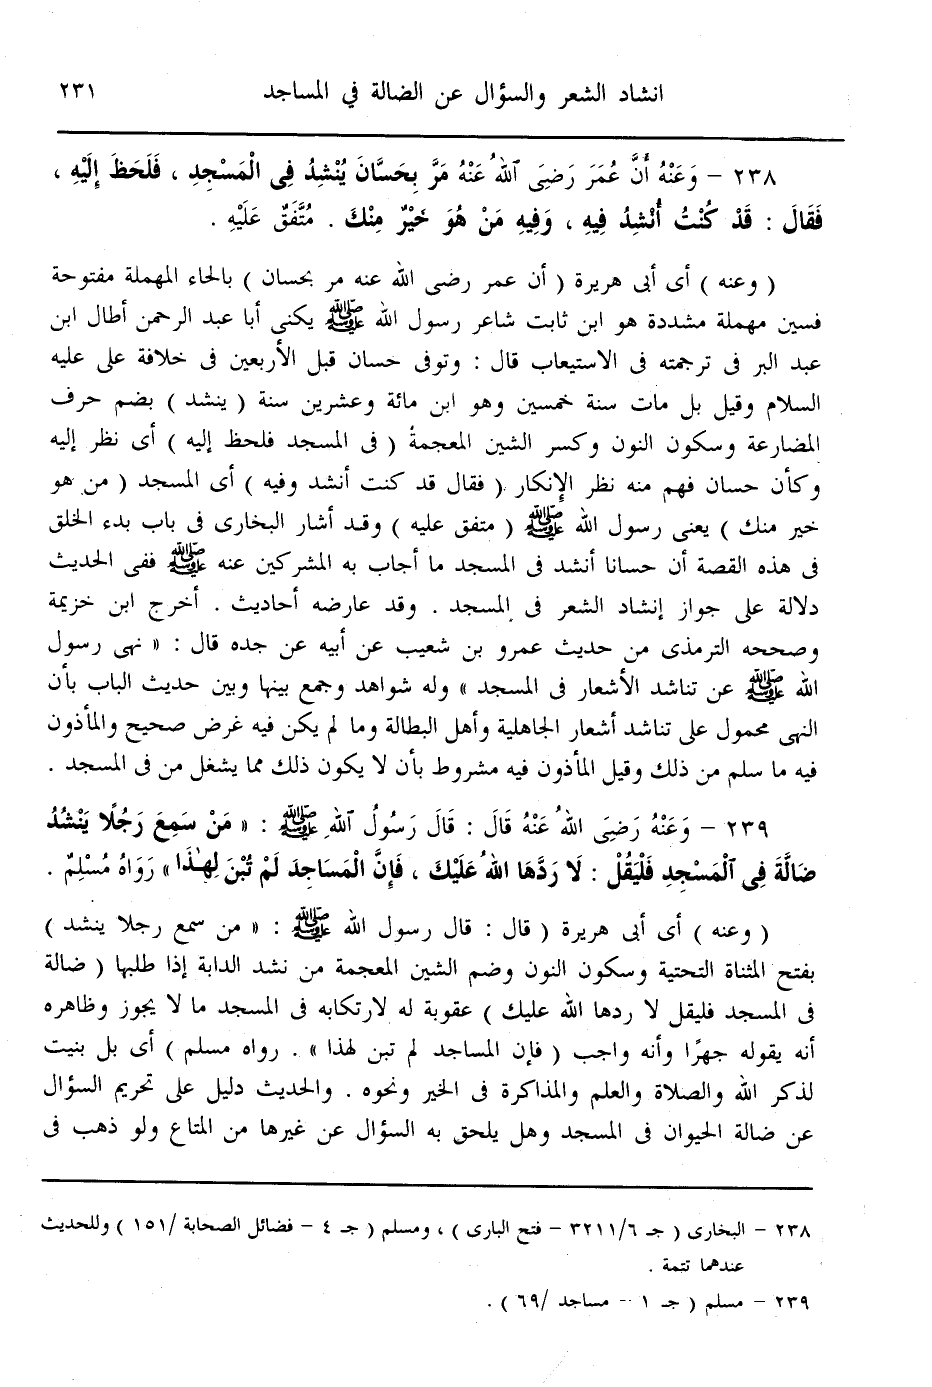 انشاد الشعر والسؤال عن الضالة في المساجد ٢٣١
٢٣٨ – وَعَنْهُ أَنَّ عُمَرَ رَضِىَ ٱللهُ عَنْهُ مَرَّ بِحَسَّانَ يُنْشِدُ فِى الْمَسْجِدِ ، فَلَحَظَ إِلَيْهِ ،
فَقَالَ : قَدْ كُنْتُ أُنْشِدُ فِيهِ ، وَفِيهِ مَنْ هُوَ خَيْرٌ مِنْكَ . مُتَّفَقٌ عَلَيْهِ .
( وعنه ) أى أبى هريرة ( أن عمر رضى الله عنه مر بحسان ) بالحاء المهملة مفتوحة
فسين مهملة مشددة هو ابن ثابت شاعر رسول الله ﷺ يكنى أبا عبد الرحمن أطال ابن
عبد البر فى ترجمته فى الاستيعاب قال : وتوفى حسان قبل الأربعين فى خلافة على عليه
السلام وقيل بل مات سنة خمسين وهو ابن مائة وعشرين سنة ( ينشد ) بضم حرف
المضارعة وسكون النون وكسر الشين المعجمة ( فى المسجد فلحظ إليه ) أى نظر إليه
وكأن حسان فهم منه نظر الإنكار ( فقال قد كنت أنشد وفيه ) أى المسجد ( من هو
خير منك ) يعنى رسول الله ﷺ ( متفق عليه ) وقد أشار البخارى فى باب بدء الخلق
فى هذه القصة أن حسانا أنشد فى المسجد ما أجاب به المشركين عنه ﷺ ففى الحديث
دلالة على جواز إنشاد الشعر فى المسجد . وقد عارضه أحاديث . أخرج ابن خزيمة
وصححه الترمذى من حديث عمرو بن شعيب عن أبيه عن جده قال : « نهى رسول
الله ﷺ عن تناشد الأشعار فى المسجد » وله شواهد وجمع بينها وبين حديث الباب بأن
النهى محمول على تناشد أشعار الجاهلية وأهل البطالة وما لم يكن فيه غرض صحيح والمأذون
فيه ما سلم من ذلك وقيل المأذون فيه مشروط بأن لا يكون ذلك مما يشغل من فى المسجد .
٢٣٩ – وَعَنْهُ رَضِىَ اللهُ عَنْهُ قَالَ : قَالَ رَسُولُ ٱللهِ ﷺ : « مَنْ سَمِعَ رَجُلًا يَنْشُدُ
ضَالَّةً فِى ٱلْمَسْجِدِ فَلْيَقُلْ : لَا رَدَّهَا اللهُ عَلَيْكَ ، فَإِنَّ الْمَسَاجِدَ لَمْ تُبْنَ لِهٰذَا » رَوَاهُ مُسْلِمٌ .
( وعنه ) أى أبى هريرة ( قال : قال رسول الله ﷺ : « من سمع رجلا ينشد )
بفتح المثناة التحتية وسكون النون وضم الشين المعجمة من نشد الدابة إذا طلبها ( ضالة
فى المسجد فليقل لا ردها الله عليك ) عقوبة له لارتكابه فى المسجد ما لا يجوز وظاهره
أنه يقوله جهرًا وأنه واجب ( فإن المساجد لم تبن لهذا » . رواه مسلم ) أى بل بنيت
لذكر الله والصلاة والعلم والمذاكرة فى الخير ونحوه . والحديث دليل على تحريم السؤال
عن ضالة الحيوان فى المسجد وهل يلحق به السؤال عن غيرها من المتاع ولو ذهب فى
٢٣٨ – البخارى ( جـ ٣٢١١/٦ – فتح البارى ) ، ومسلم ( جـ ٤ – فضائل الصحابة /١٥١ ) وللحديث
عندهما تتمة .
٢٣٩ – مسلم ( جـ ١ – مساجد /٦٩ ) .